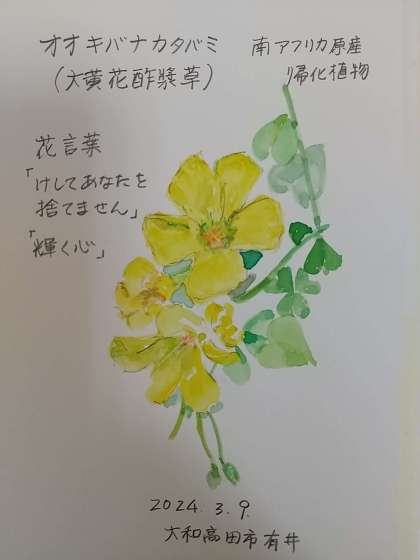 オオキバナカタバミ
(大黄花酢漿草)
南アフリカ原産
帰化植物
花言葉
「けしてあなたを
捨てません」
「輝く心」
2024. 3. 9.
大和高田市有井